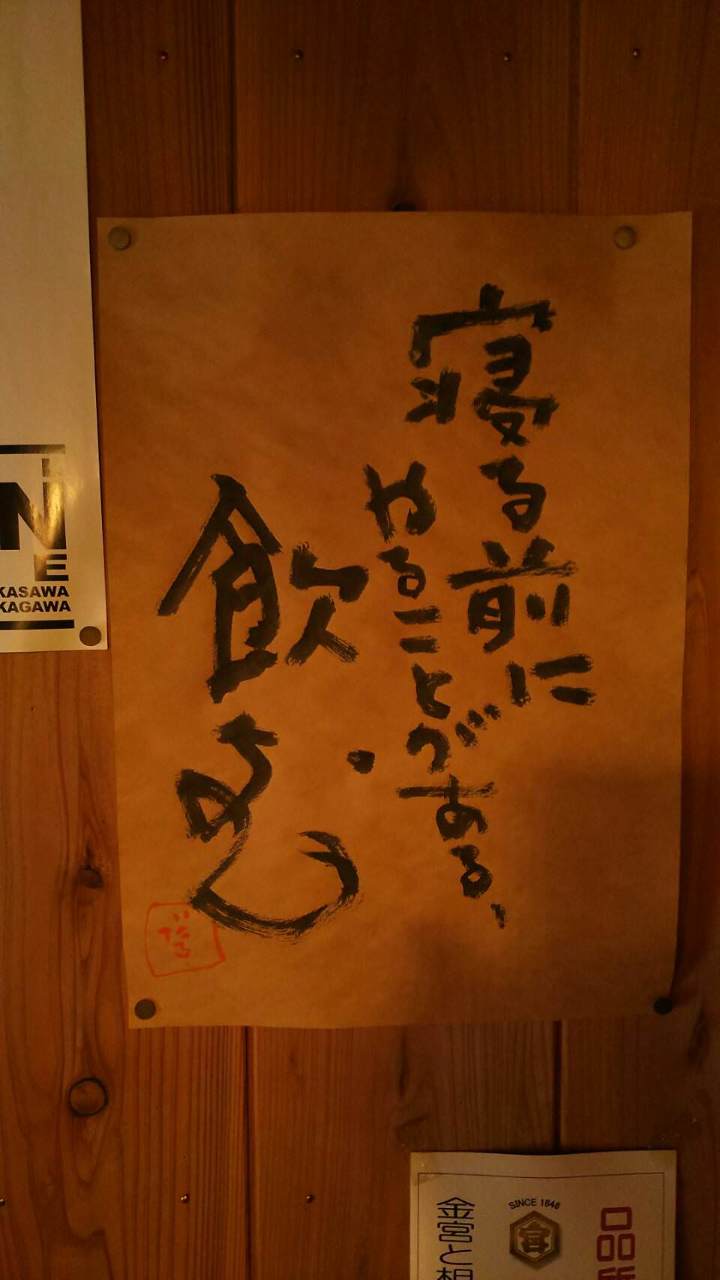 寝る前に
やることがある、
飲む
NE
E
KASAWA
KAGAWA
SINCE 1846
宮
品
金宮と相